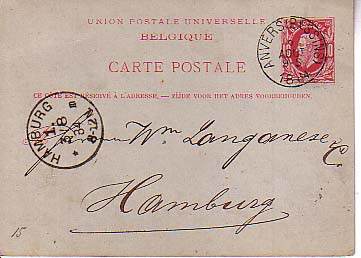 UNION POSTALE UNIVERSELLE
BELGIQUE
CARTE POSTALE
CE CÔTÉ EST RÉSERVÉ À L'ADRESSE. — ZIJDE VOOR HET ADRES VOORBEHOUDEN.
ANVERS
HAMBURG
Herren Wm Langanese
Hamburg
15